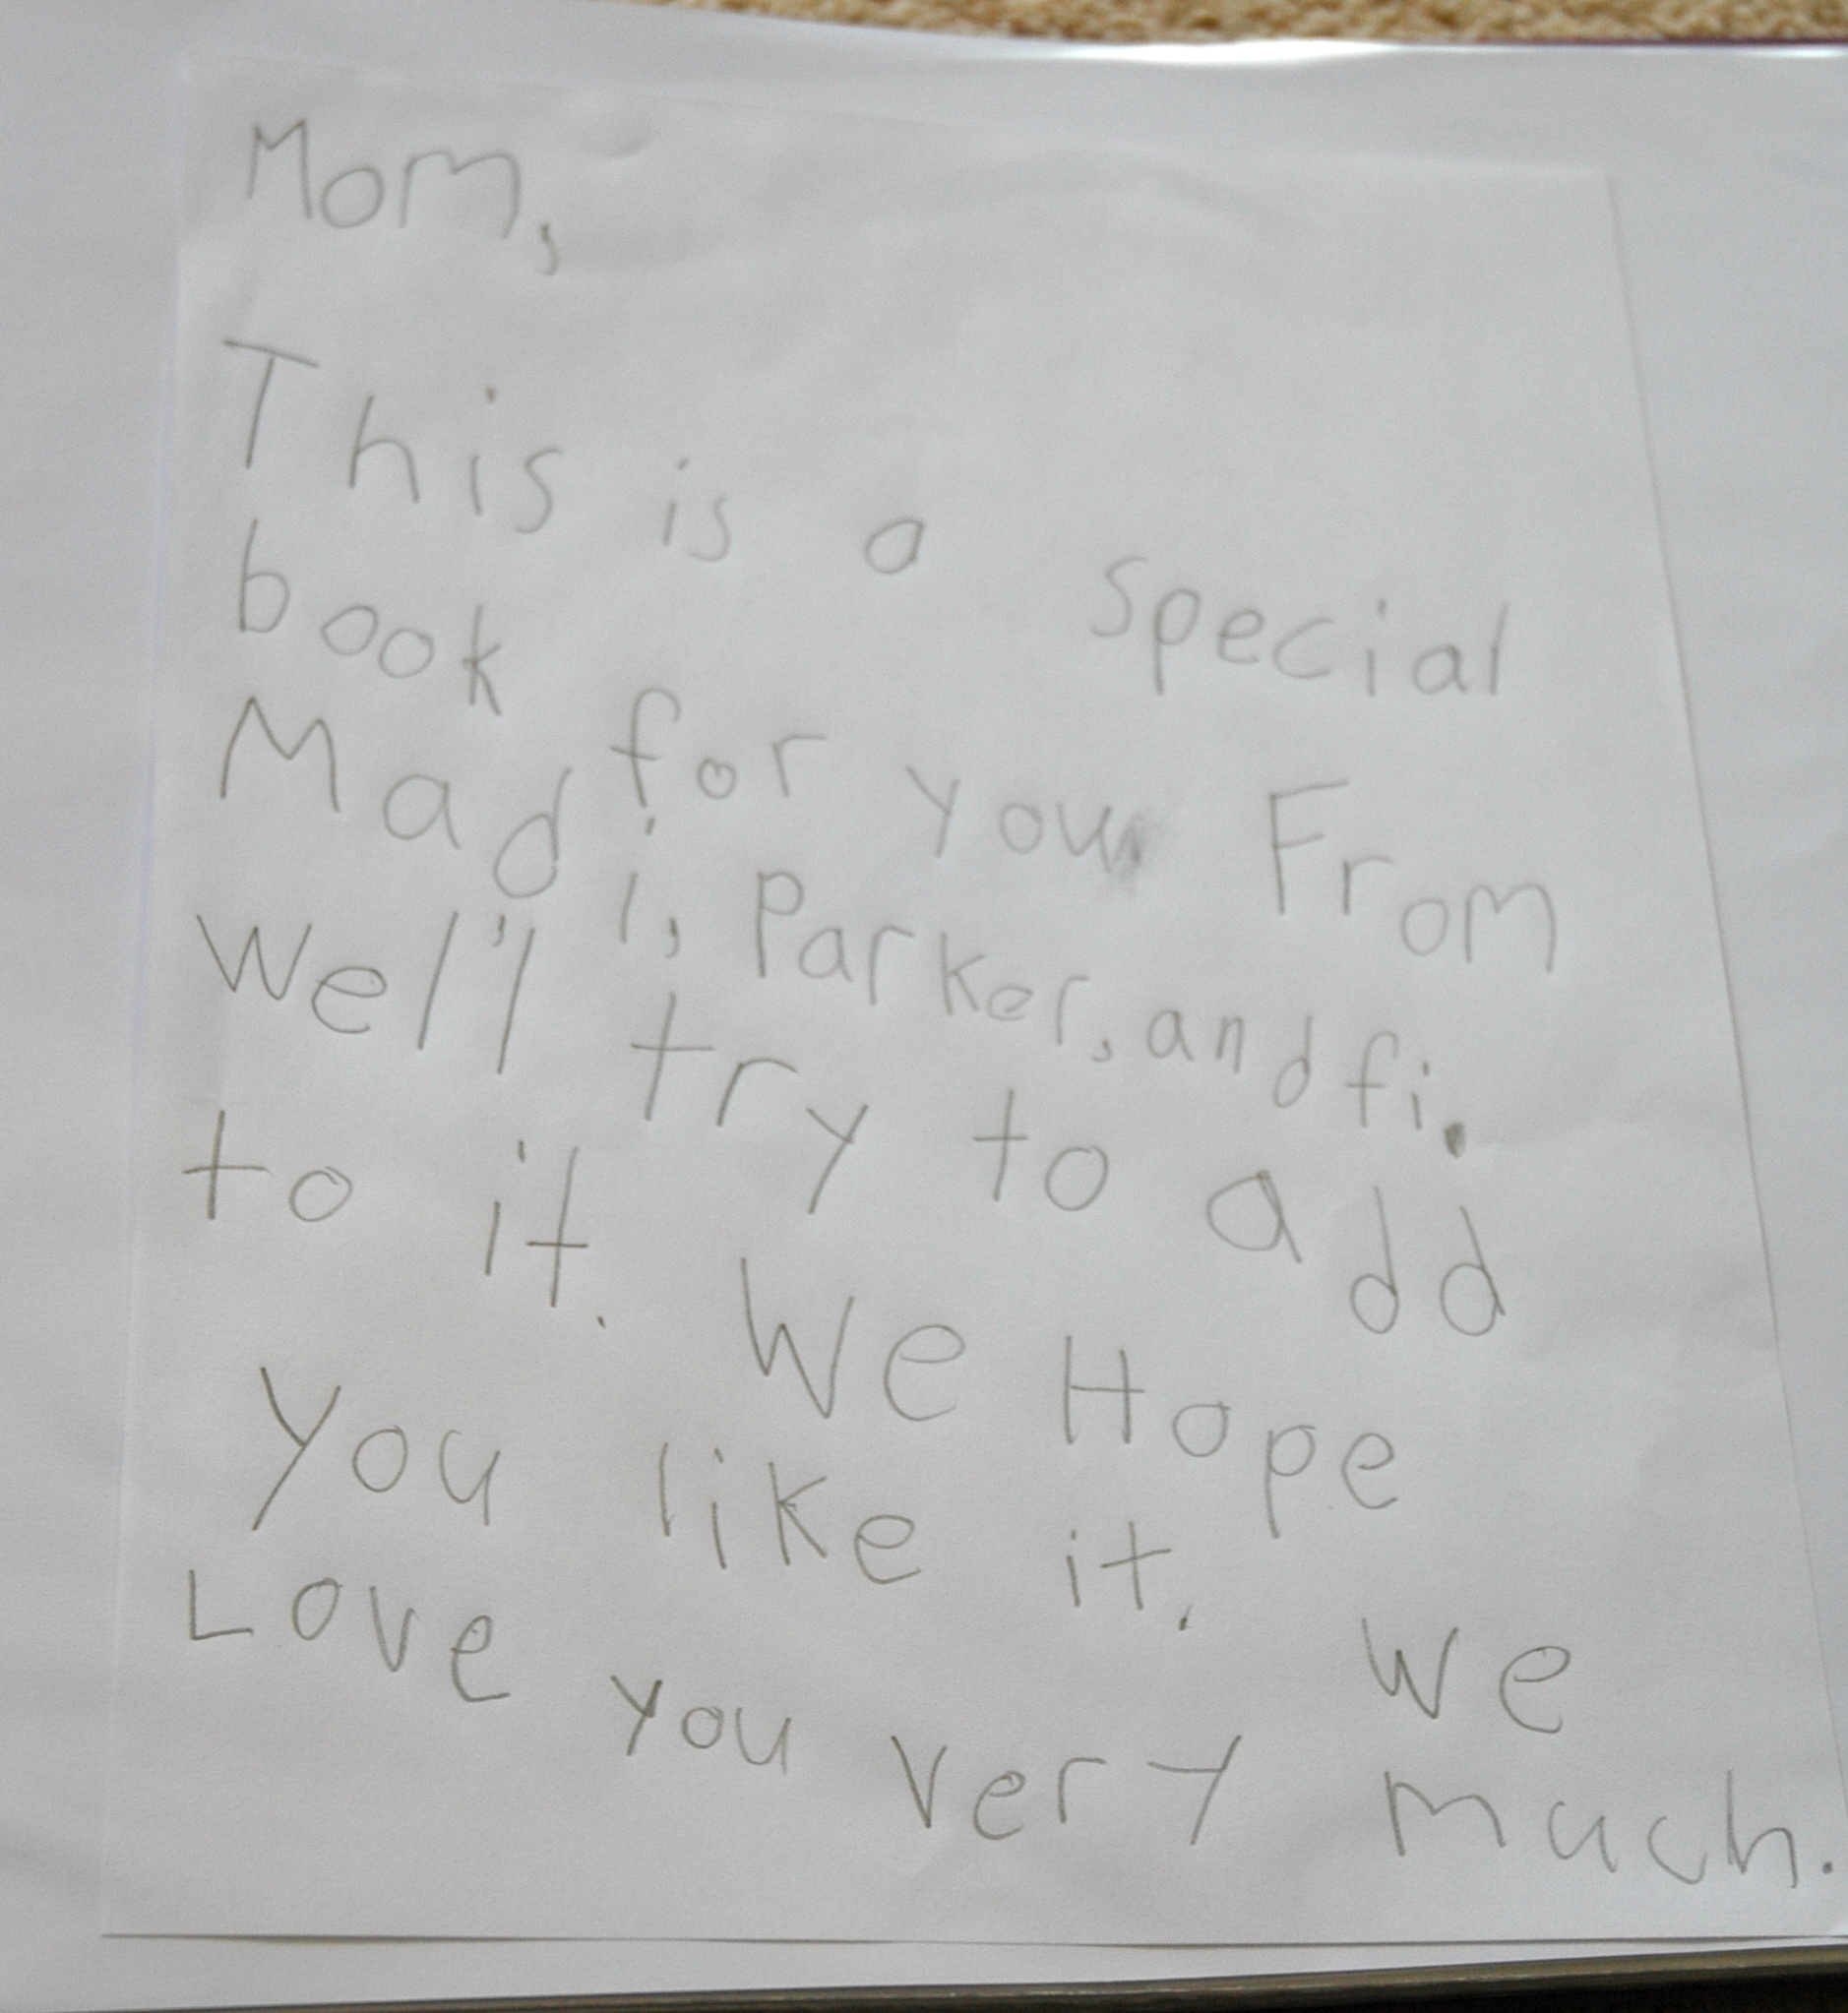 Mom,
This is a special
book for you From
Madi, Parker, and fi.
We'll try to add
to it. We Hope
you like it. We
Love you very much.